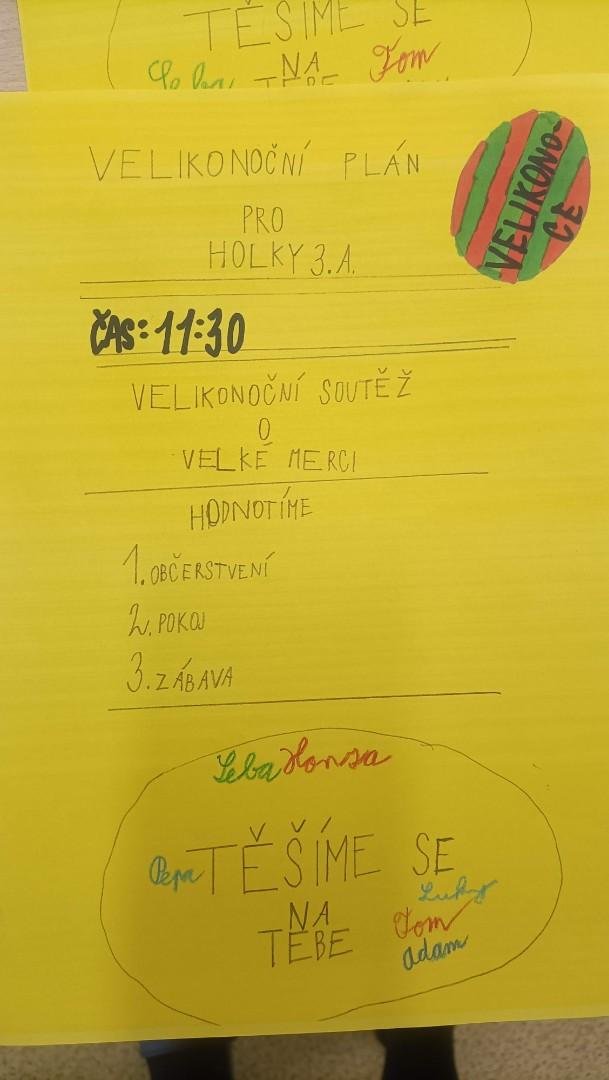 TĚŠÍME SE
NA
Tom
TEBE
VELIKONOČNÍ PLÁN
PRO
HOLKY 3.A.
VELIKONO-
CE
ČAS: 11:30
VELIKONOČNÍ SOUTĚŽ
O
VELKÉ MERCI
HODNOTÍME
1. OBČERSTVENÍ
2. POKOJ
3. ZÁBAVA
Seba Honza
Pepa TĚŠÍME SE
Luky
NA Tom
TEBE Adam